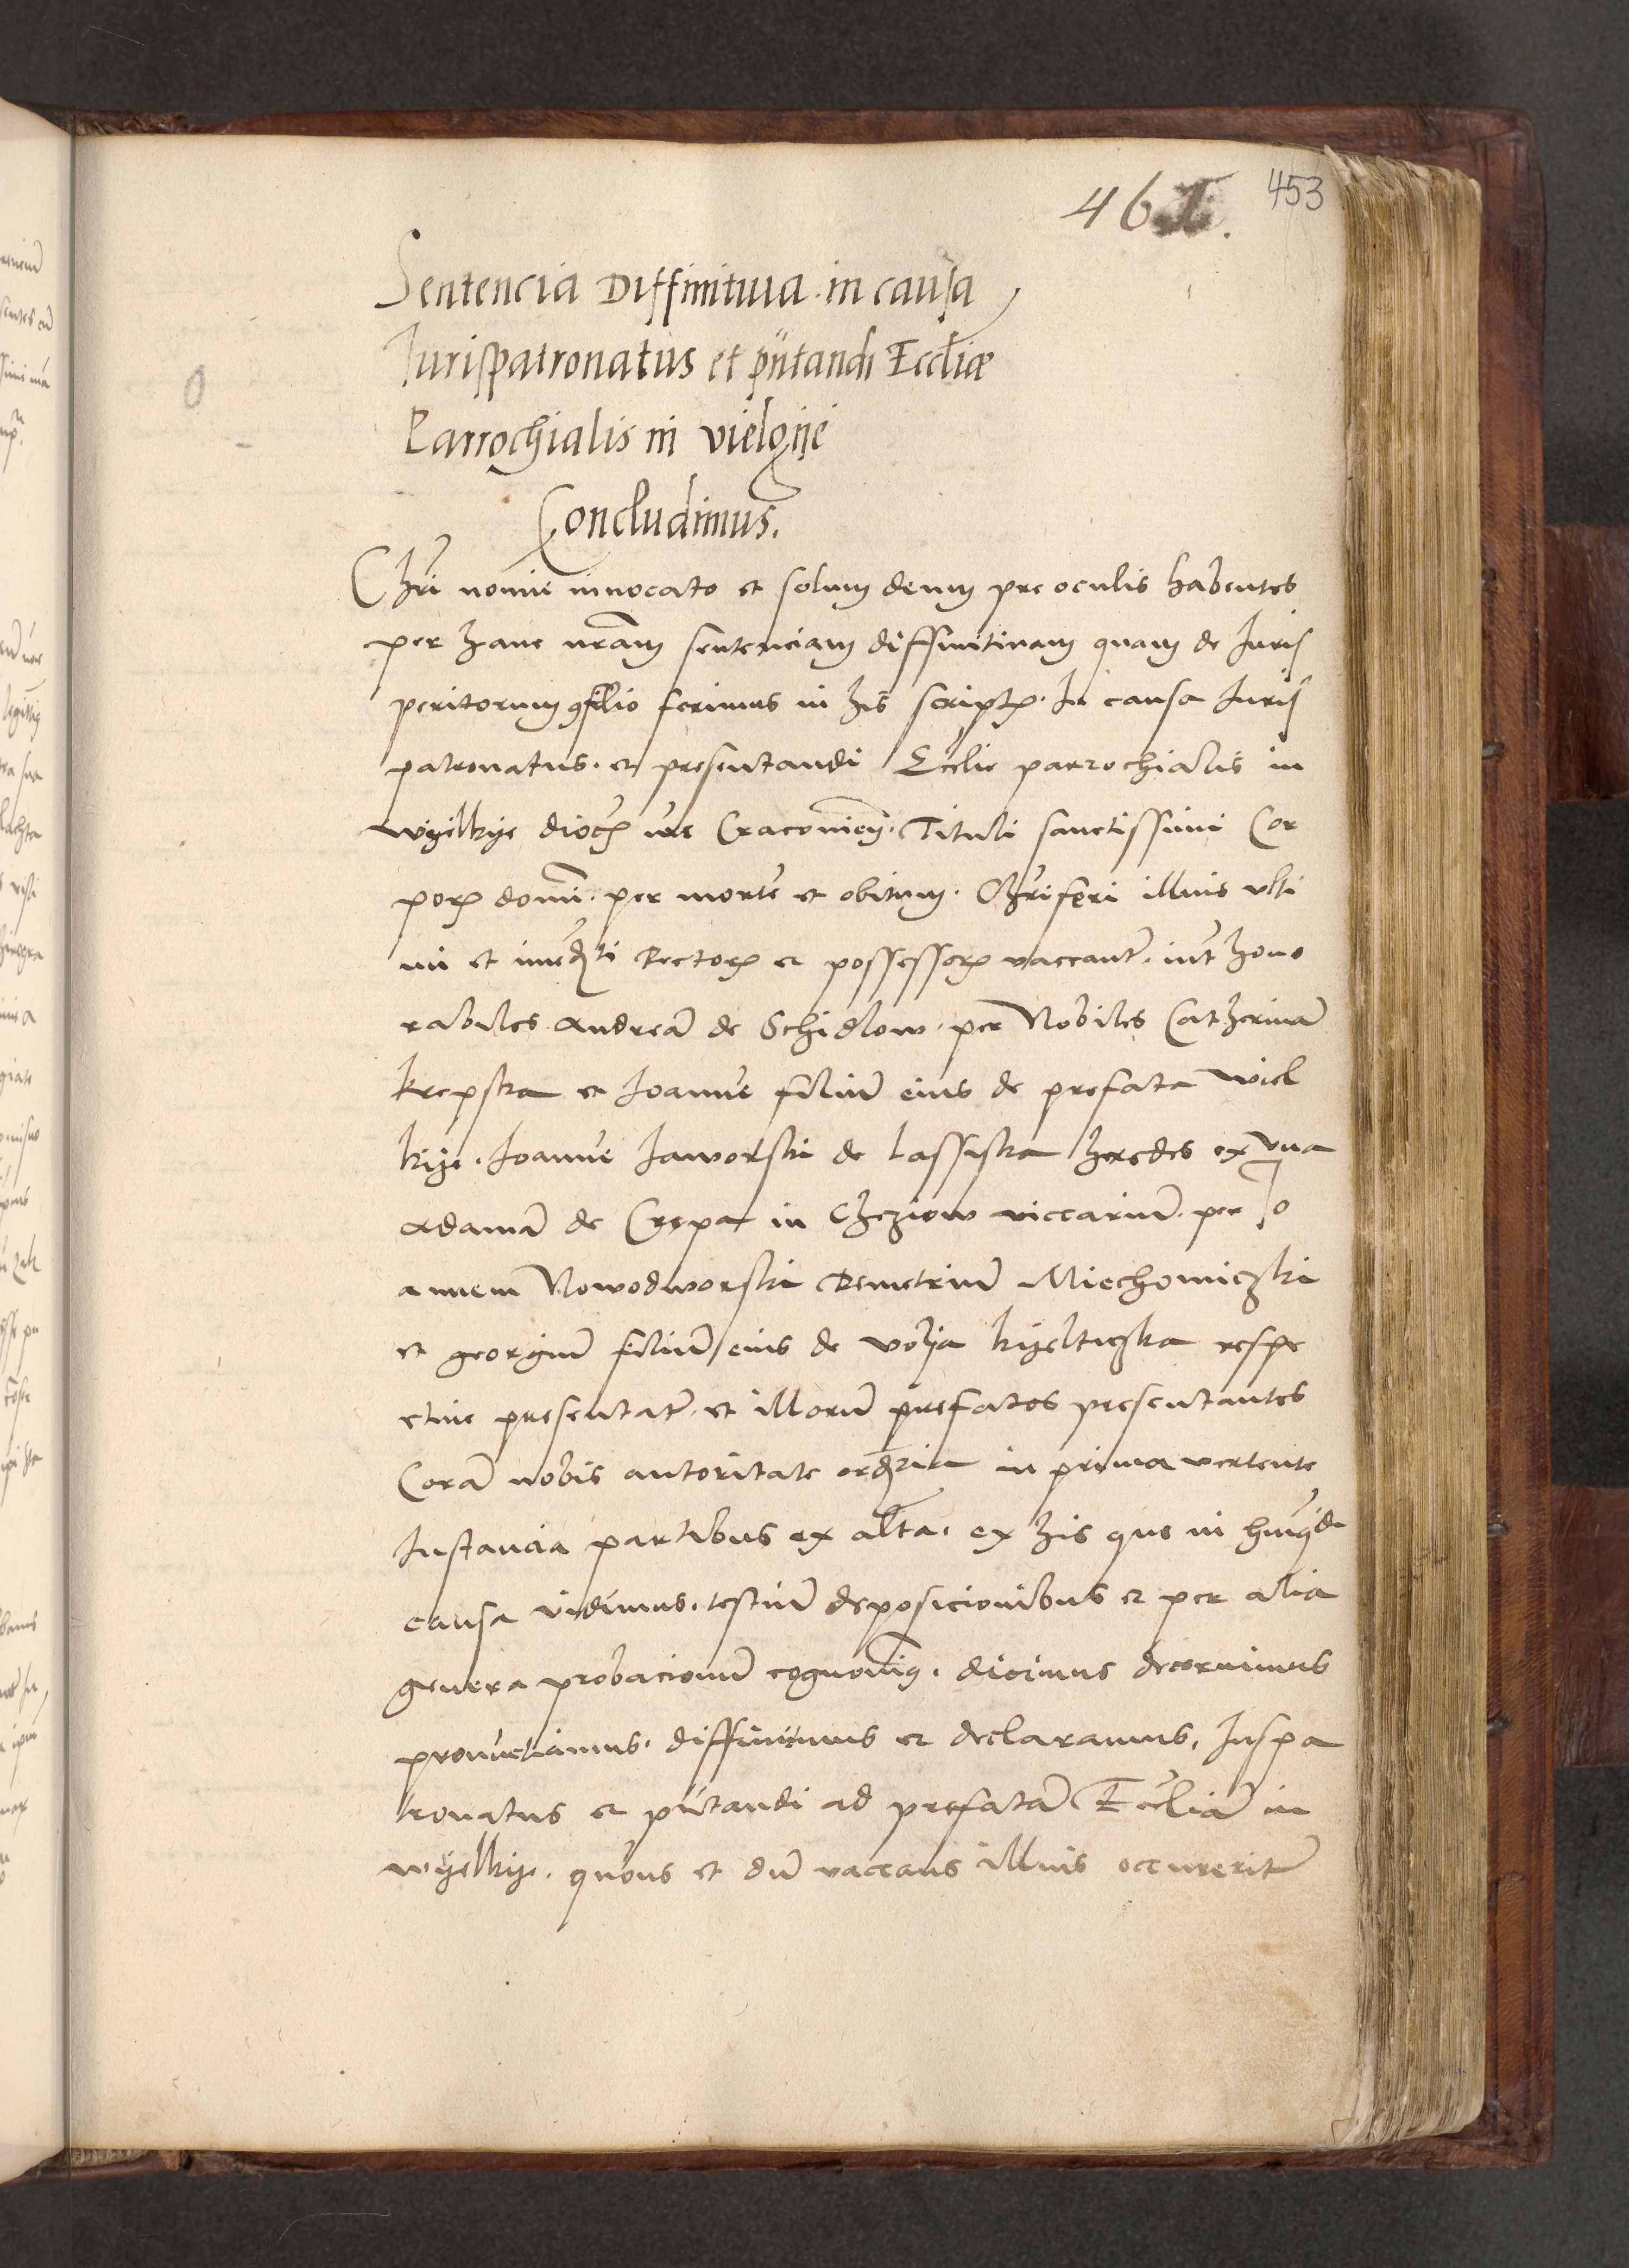 461. 453
Sentencia Diffinitiua in causa
Jurispatronatus et pñtandi Eccliæ
Parrochialis in vielgiie
Concludimus.
Chri nomie innocato et solum deum pre oculis habentes
per hanc nram sentenciam diffinitiuam quam de Juris
peritorum 9silio ferimus in his scriptis. In causa Juris
patronatus. et presentandi Ecclie parrochialis in
wyelkye dioc. nre Cracouien. Tituli sanctissimi Cor
poris domi. per morte et obitum. Chriferi illius vlti
mi et imediti Rectoris et possessoris vaccante. int hono
rabiles Andrea de Schidlow. per Nobiles Catherina
krepska et Joanne filiu eius de prefata wiel
kye. Joanne Jaworski de Lassiska heredes ex vna
Adama de in Cheziow viccariu. per Jo
annem Nowodworski Demetriu Miechowiczki
et georgiu filiu eius de volya kyelticzka respe
ctiue presentatu. et illoru prefatos presentantes
Cora nobis autoritate ordria in prima vertente
Instancia partibus ex altra. ex his que in huiusdi
causa vidimus. testiu deposicionibus et per alia
genera probacionu cognouimus. dicimus decernimus
pronuctiamus. diffinimus et declaramus. Juspa
tronatus et pñtandi ad prefata Ecclia in
wyelkye. quons et du vaccans illius occurerit